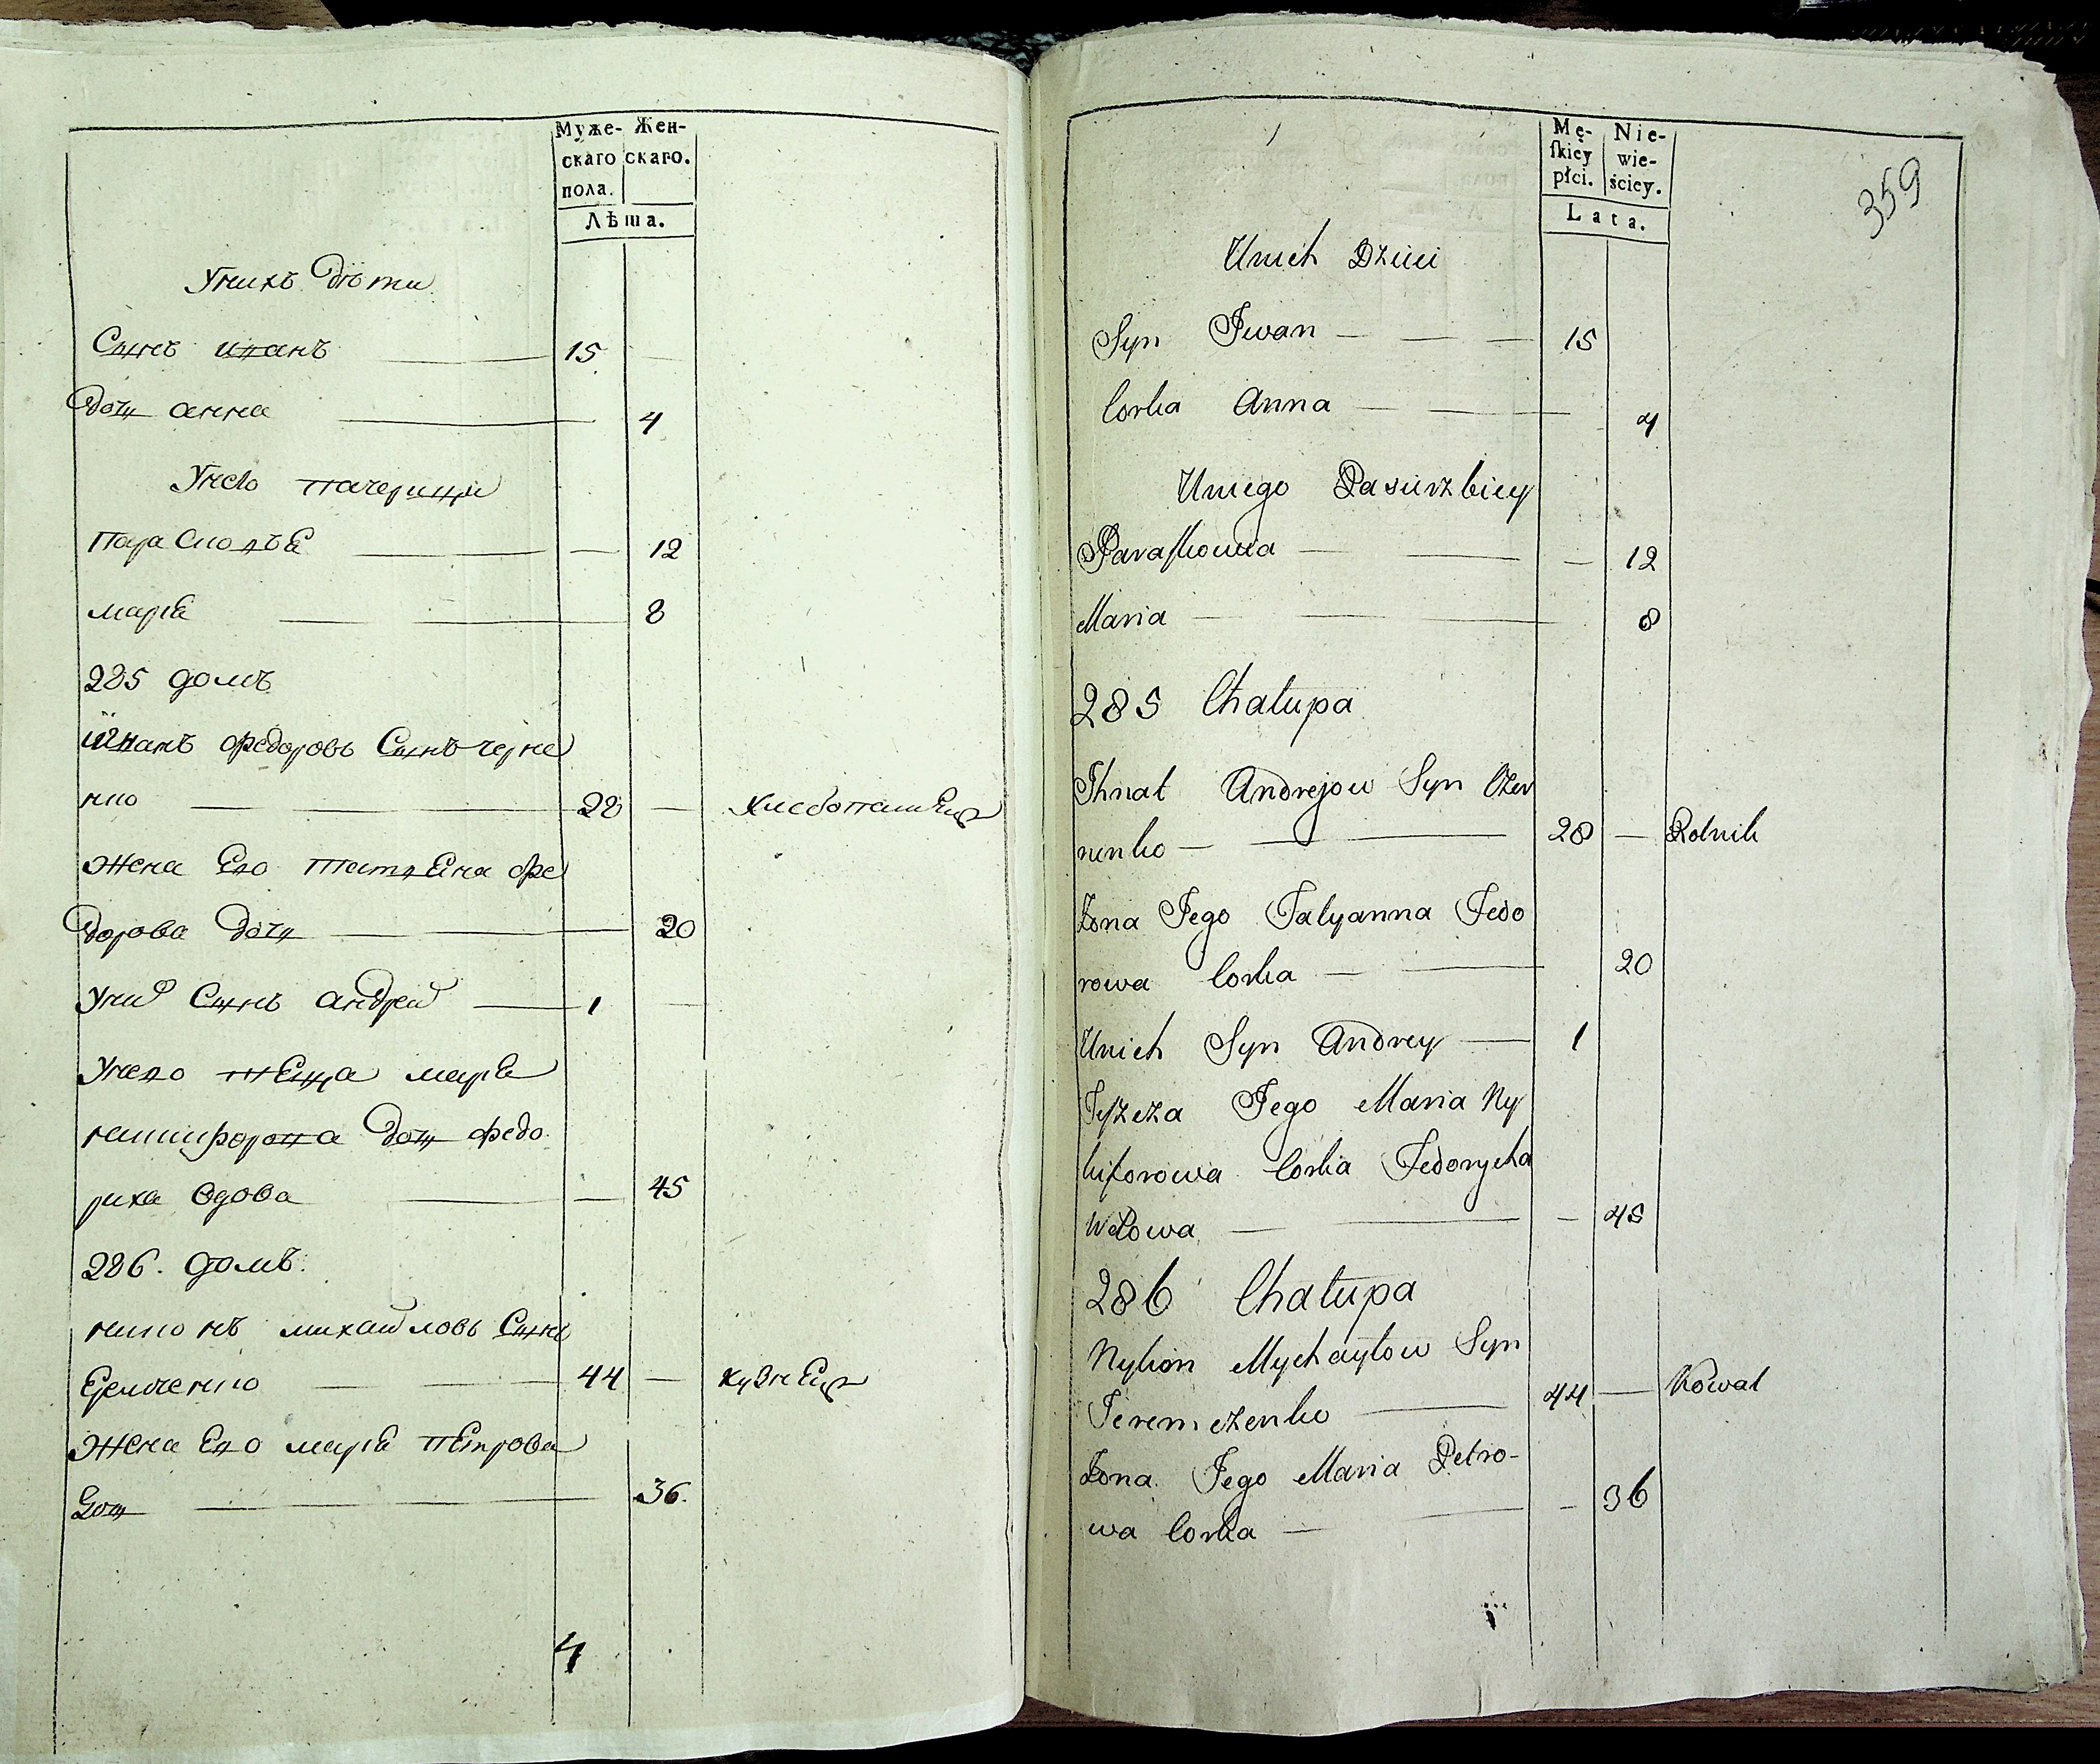 Муже- Жен-
скаго скаго.
пола.
Лѣта.
Унихъ дѣти
Сынъ иванъ 15
дочь анна 4
Унего пачерицы
Парасковѣя 12
марія 8
285 домъ
федоровъ Сынъ черне
нко 28 хлебопашецъ
Жена Его татьяна фе
дорова дочь 20
Уних Сынъ андрей 1
Унего теща марія
никифорова дочь федо
риха вдова 45
286. домъ.
никонъ михайловъ Сынъ
Еремченко 44 кузнецъ
Жена Его марія петрова
дочь 36.
4
Mę- Nie-
ſkiey wie-
płci. ściey.
Lata.
359
Unich Dzieci
Syn Jwan 15
Corka Anna 4
Uniego Pasierzbicy
Paraſkowia 12
Maria 8
285 Chałupa
Ihnat Andrejow Syn Czer
nenko 28 Rolnik
Żona Jego Tatyanna Fedo
rowa Corka 20
Unich Syn Andrey 1
Teſzcza Jego Maria Ny
kiforowa Corka Fedorycha
Wdowa 45
286 Chałupa
Nykon Mychayłow Syn
Jeremczenko 44 Kowal
Żona Jego Maria Petro-
wa Corka 36